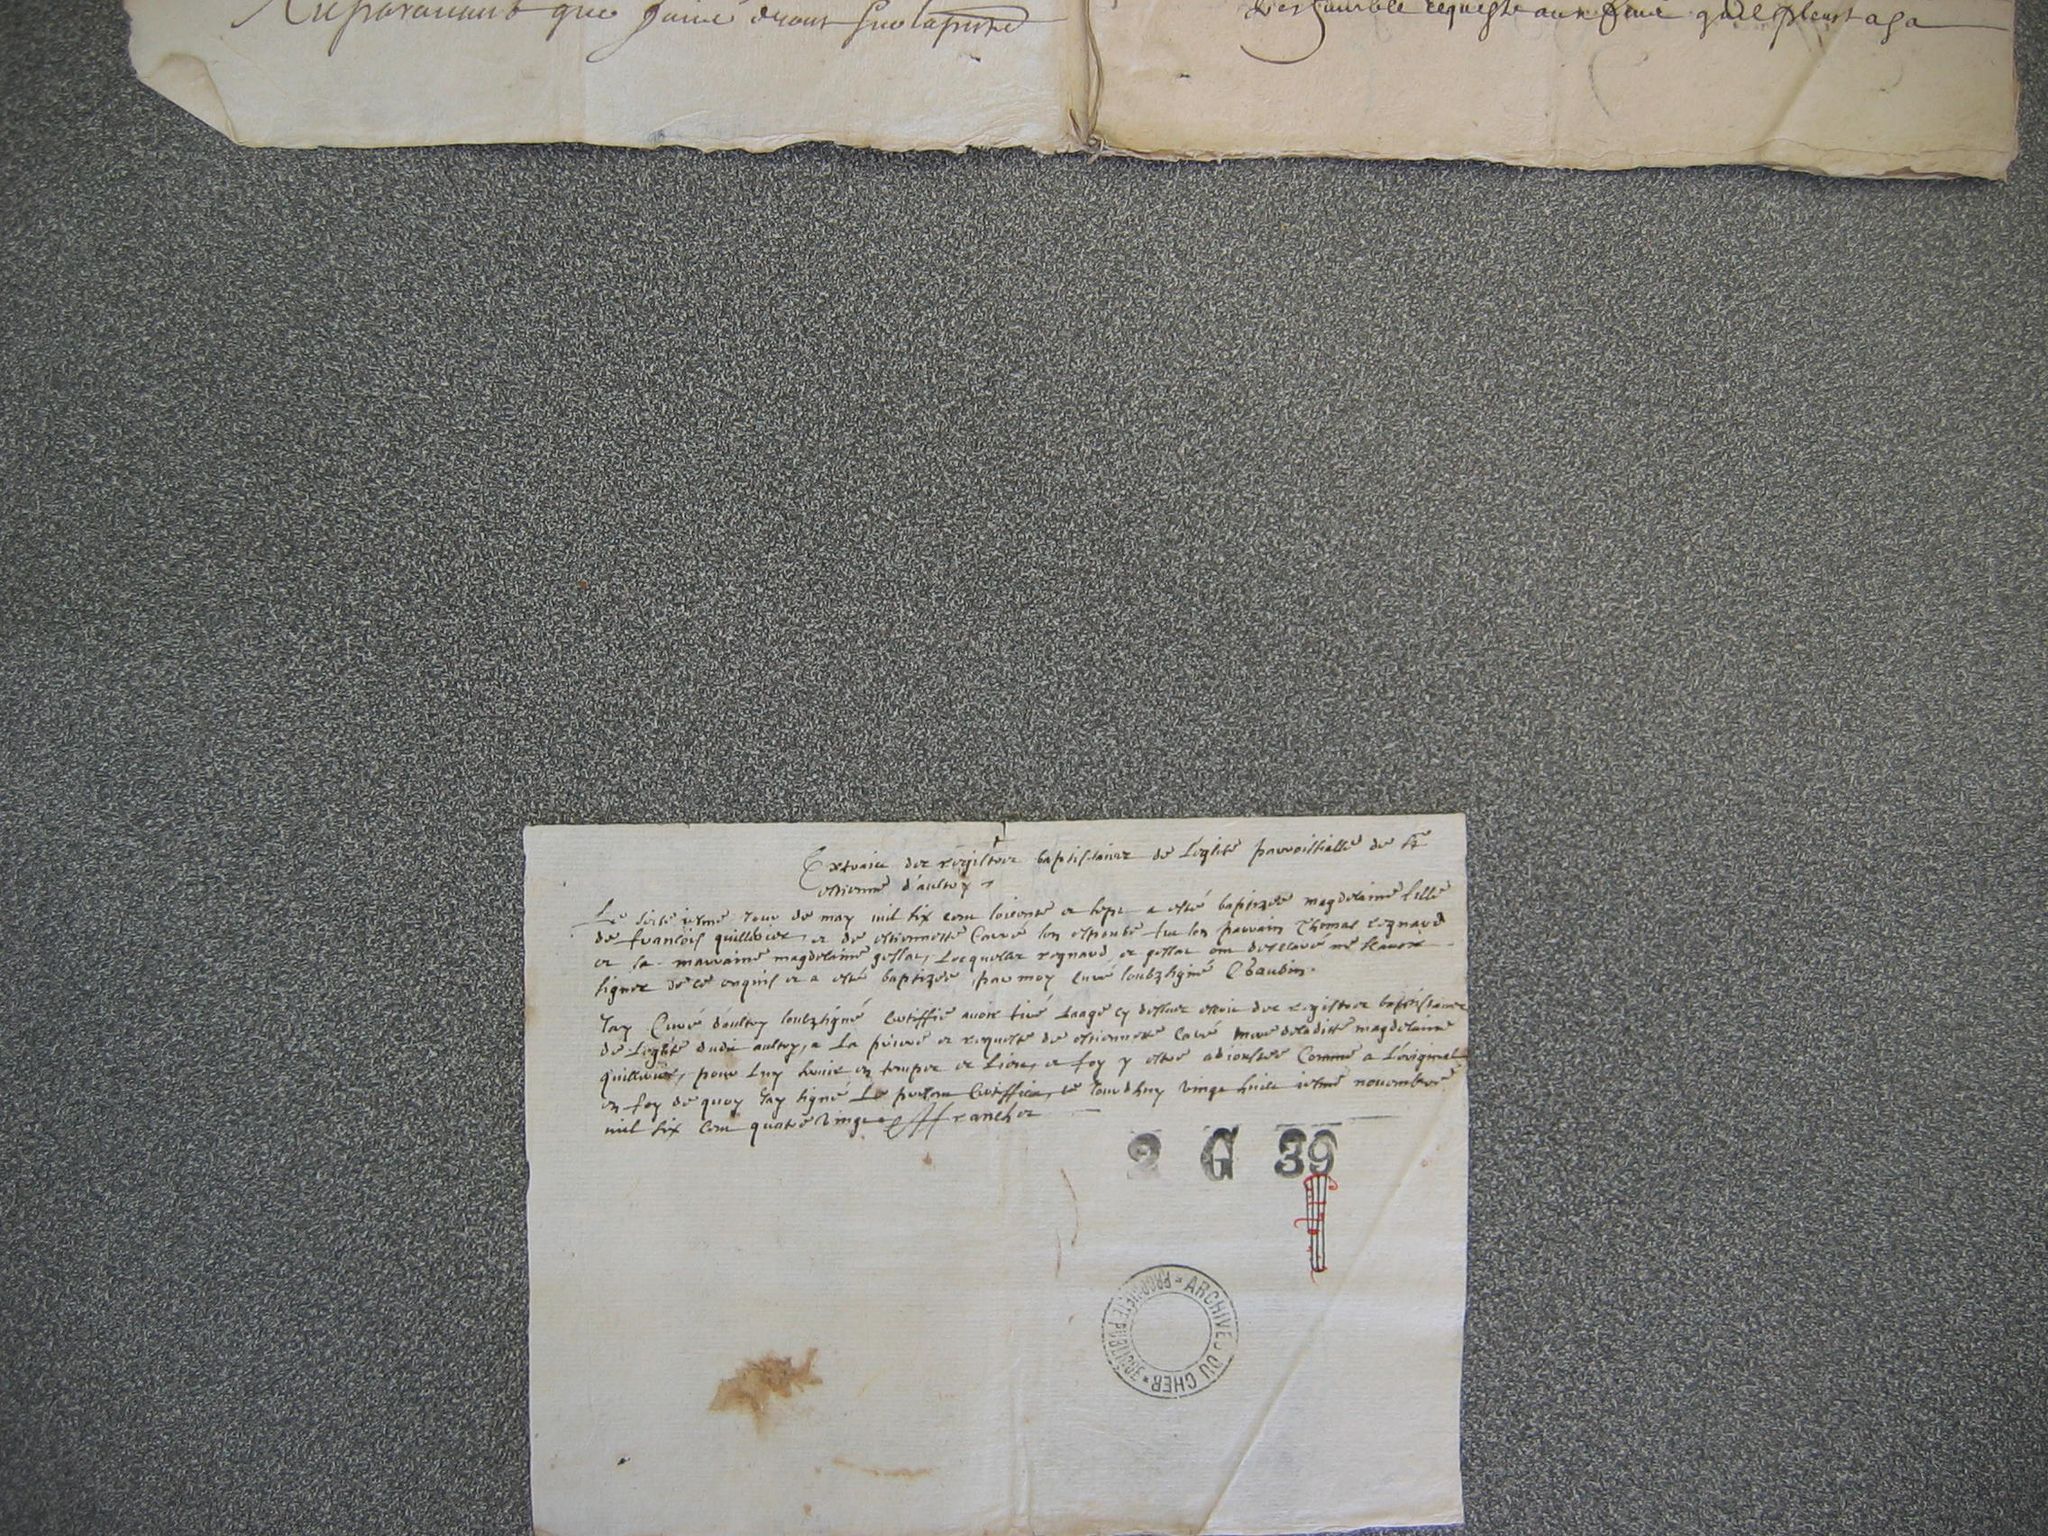 Auparavant que
requeste qu'il pleust a sa
Extraict des registres baptistaires de l'eglise parroissialle de St
estienne d'aultry
Le jour de may mil six cent soixente et sept a esté baptizée magdelaine fille
de francois quillerier, et de estiennette Carré son espouse fut son parrain Thomas regnard
et sa marraine magdelaine gessat, Lesquelles regnard et gessat ont desclaré ne scavoir
signer de ce enquis et a esté baptizée par moy curé soubzsigné
Jay Curé d'aultry soubzsigné Certiffie avoir tiré Laage cy dessus escrit des registres baptistaires
de Leglise dudit aultry, a La priere et requeste de estiennette Carré mere de laditte magdelaine
quillerier, pour Luy servir en temps et Lieu, et foy y estre adioustée Comme a L'original
en foy de quoy Jay signé Le present Certifficat, ce Jourdhuy vingt huict iesme novembre
mil six cent quatre vingt
2 G 39
ARCHIVES DU CHER * PROPRIÉTÉ PUBLIQUE *